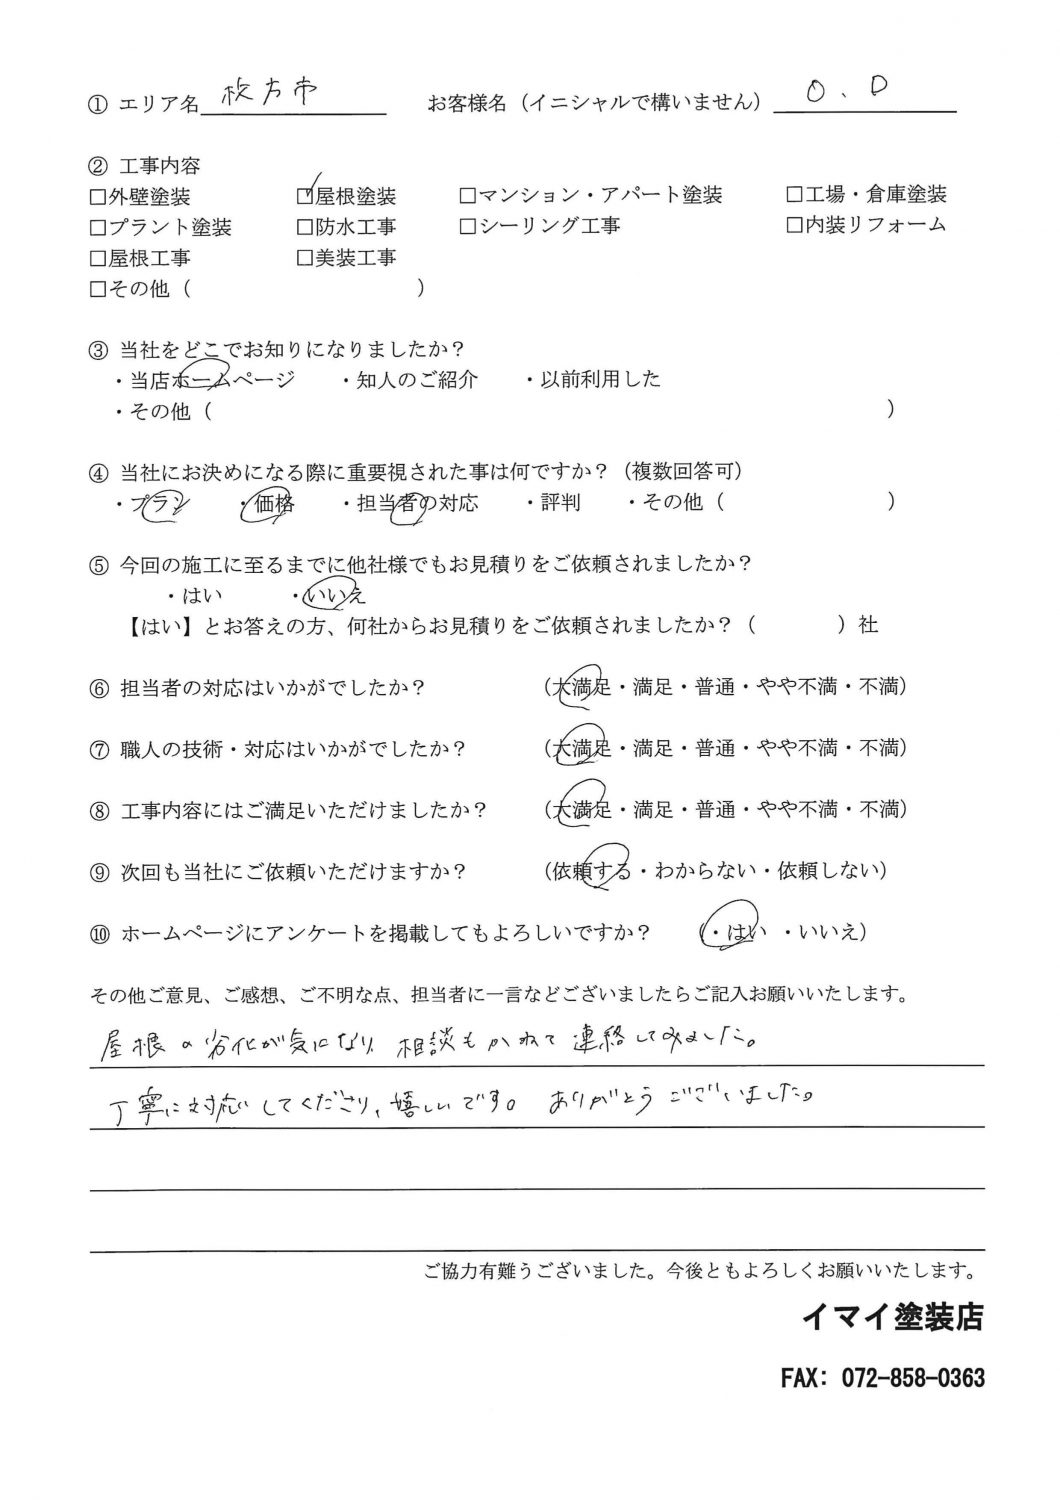 ① エリア名 枚方市 お客様名（イニシャルで構いません） O、D
② 工事内容
□外壁塗装 ☑屋根塗装 □マンション・アパート塗装 □工場・倉庫塗装
□プラント塗装 □防水工事 □シーリング工事 □内装リフォーム
□屋根工事 □美装工事
□その他（ ）
③ 当社をどこでお知りになりましたか？
・当店ホームページ ・知人のご紹介 ・以前利用した
・その他（ ）
④ 当社にお決めになる際に重要視された事は何ですか？（複数回答可）
・プラン ・価格 ・担当者の対応 ・評判 ・その他（ ）
⑤ 今回の施工に至るまでに他社様でもお見積りをご依頼されましたか？
・はい ・いいえ
【はい】とお答えの方、何社からお見積りをご依頼されましたか？（ ）社
⑥ 担当者の対応はいかがでしたか？ （大満足・満足・普通・やや不満・不満）
⑦ 職人の技術・対応はいかがでしたか？ （大満足・満足・普通・やや不満・不満）
⑧ 工事内容にはご満足いただけましたか？ （大満足・満足・普通・やや不満・不満）
⑨ 次回も当社にご依頼いただけますか？ （依頼する・わからない・依頼しない）
⑩ ホームページにアンケートを掲載してもよろしいですか？ （・はい ・いいえ）
その他ご意見、ご感想、ご不明な点、担当者に一言などございましたらご記入お願いいたします。
屋根の劣化が気になり、相談もかねて連絡してみました。
丁寧に対応してくださり、嬉しいです。ありがとうございました。
ご協力有難うございました。今後ともよろしくお願いいたします。
イマイ塗装店
FAX: 072-858-0363